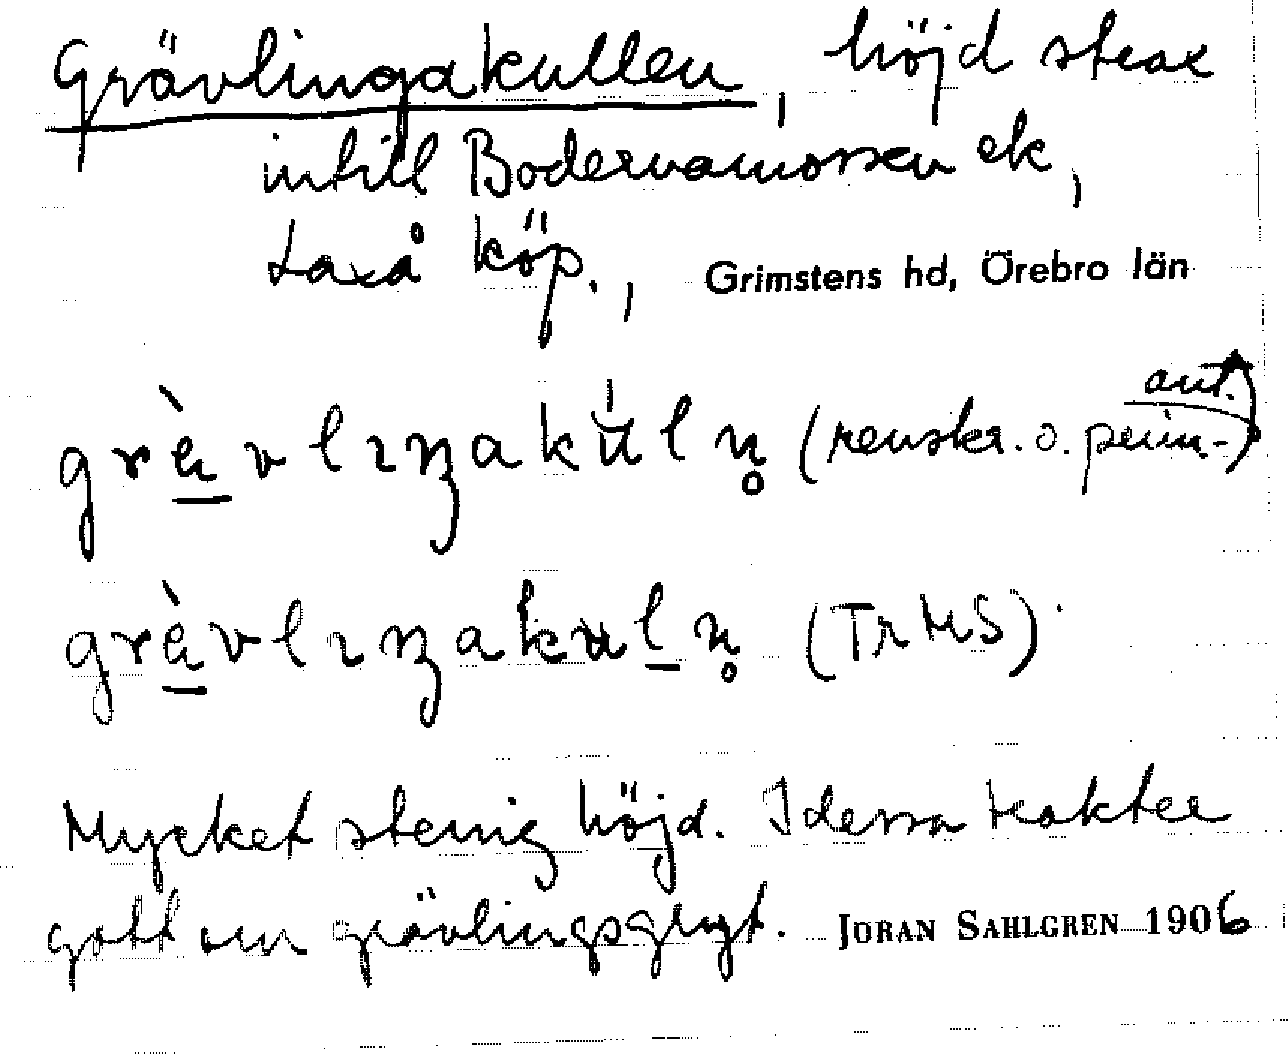 Grävlingakullen, höjd strax
intill Bodernamossen ek,
Laxå köp., Grimstens hd, Örebro län
grä̀vlıŋakúln̥ (renskr. o. prim-ant.)
grä̀vlıŋakuln̥ (Tr MS)
Mycket stenig höjd. I dessa trakter
gott om grävlingsgryt. JÖRAN SAHLGREN 1906